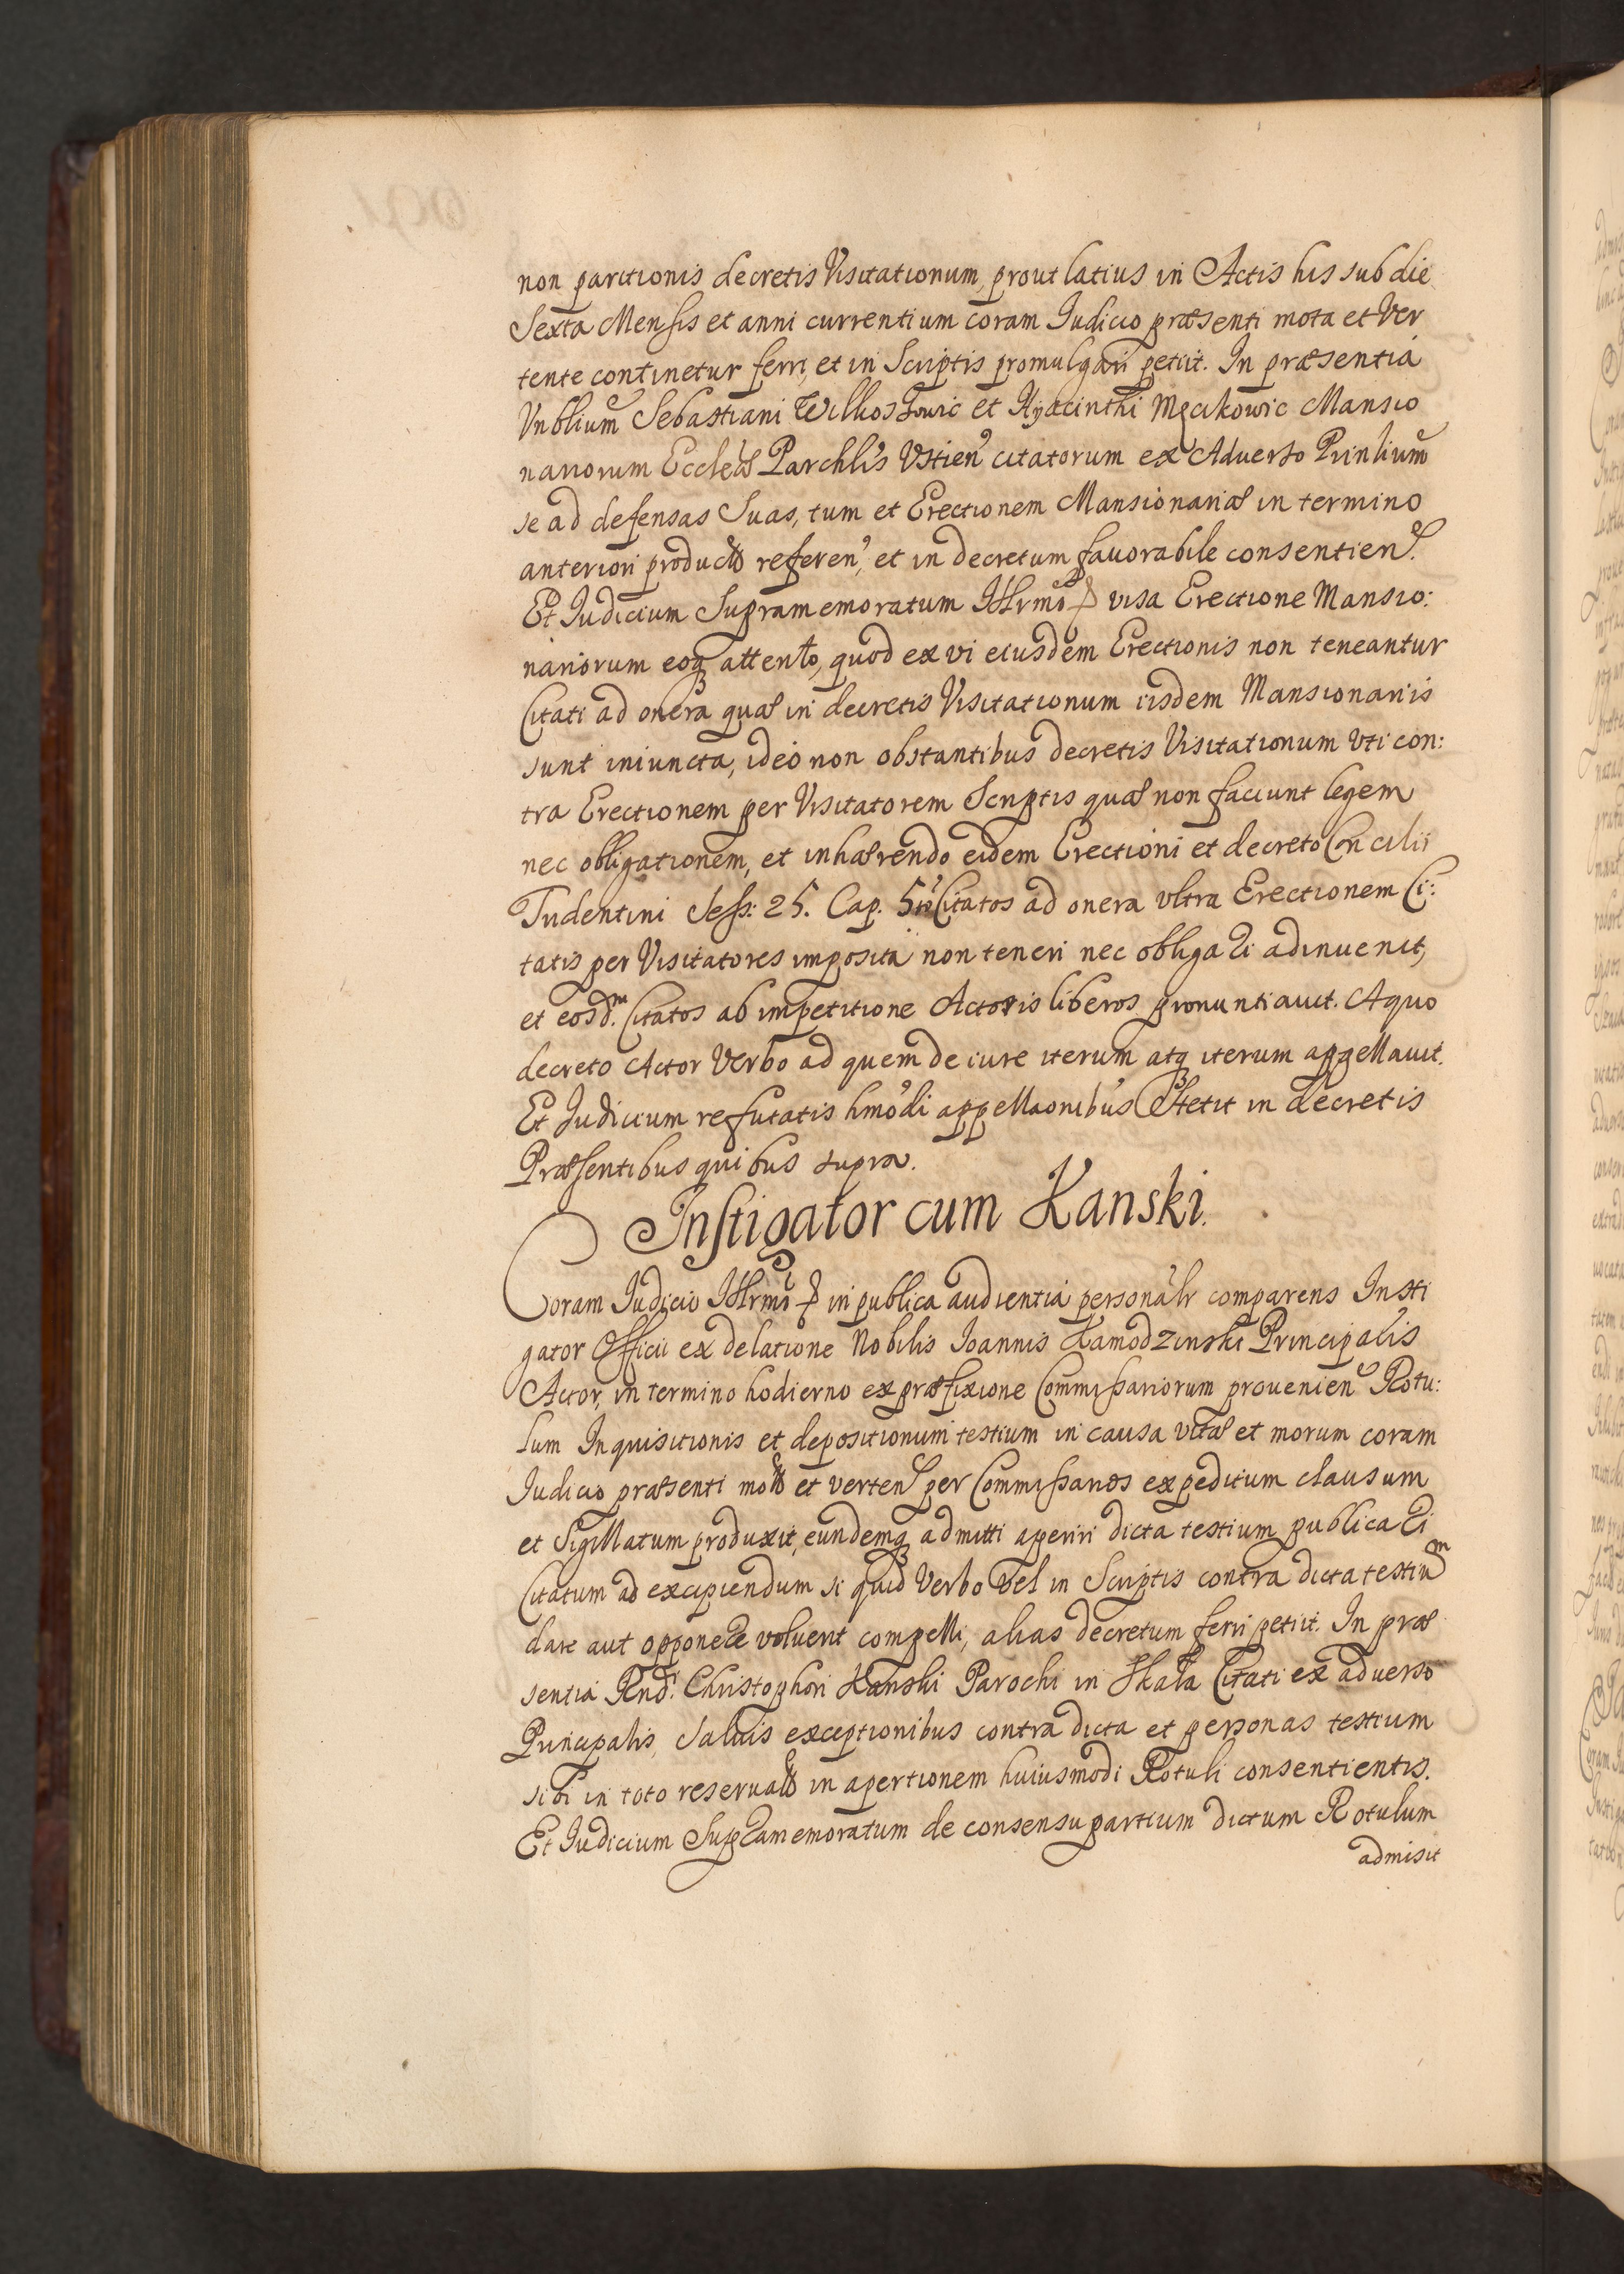 non paritionis decretis Visitationum, prout latius in Actis his sub die
Sexta Mensis et anni currentium coram Iudicio præsenti mota et Ver
tente continetur ferri, et in Scriptis promulgari petiit. In præsentiâ
Vnblium Sebastiani et Hyacinthi Męcikowic Mansio
nariorum Eccłeæ Parchlis Vstien̄ citatorum ex Aduerso Prinlium
se ad defensas Suas, tum et Erectionem Mansionariæ in termino
anteriori producto referen̄, et in decretum fauorabile consentien̄.
Et Iudicium Supramemoratum Illrmo visa Erectione Mansio:
nariorum eoq attento, quod ex vi eiusdem Erectionis non teneantur
Citati ad onera quæ in decretis Visitationum iisdem Mansionariis
sunt iniuncta, ideo non obstantibus decretis Visitationum vti con:
tra Erectionem per Visitatorem Scriptis quæ non faciunt legem
nec obligationem, et inhærendo eidem Erectioni et decreto Concilii
Tridentini Sess: 25. Cap. 5to Citatos ad onera vltra Erectionem Ci:
tatis per Visitatores imposita non teneri nec obligari adinuenit,
et eosd.m Citatos ab impetitione Actoris liberos pronuntiauit. A quo
decreto Actor Verbo ad quem de iure iterum atq iterum appellauit.
Et Iudicium refutatis hmodi appellaonibus Stetit in decretis
Præsentibus quibus supra.
Instigator cum Kanski.
Coram Iudicio Illrmi in publica audientia personalr comparens Insti
gator Officii ex delatione Nobilis Ioannis Kamodzinski Principalis
Actor, in termino hodierno ex præfixione Commissariorum prouenien̄ Rotu:
lum Inquisitionis et depositionum testium in causa vitæ et morum coram
Iudicio præsenti mota et verten̄ per Commissarios expeditum clausum
et Sigillatum produxit, eundemq admitti aperiri dicta testium publicari
Citatum ad excipiendum si quid Verbo Vel in Scriptis contra dicta testium
dare aut opponere voluerit compelli, alias decretum ferri petiit. In præ
sentia Rnd.i Christophori Kanski Parochi in Skała Citati ex aduerso
Principalis, Saluis exceptionibus contra dicta et personas testium
sibi in toto reseruatis in apertionem huiusmodi Rotuli consentientis.
Et Iudicium Supramemoratum de consensu partium dictum Rotulum
admisit